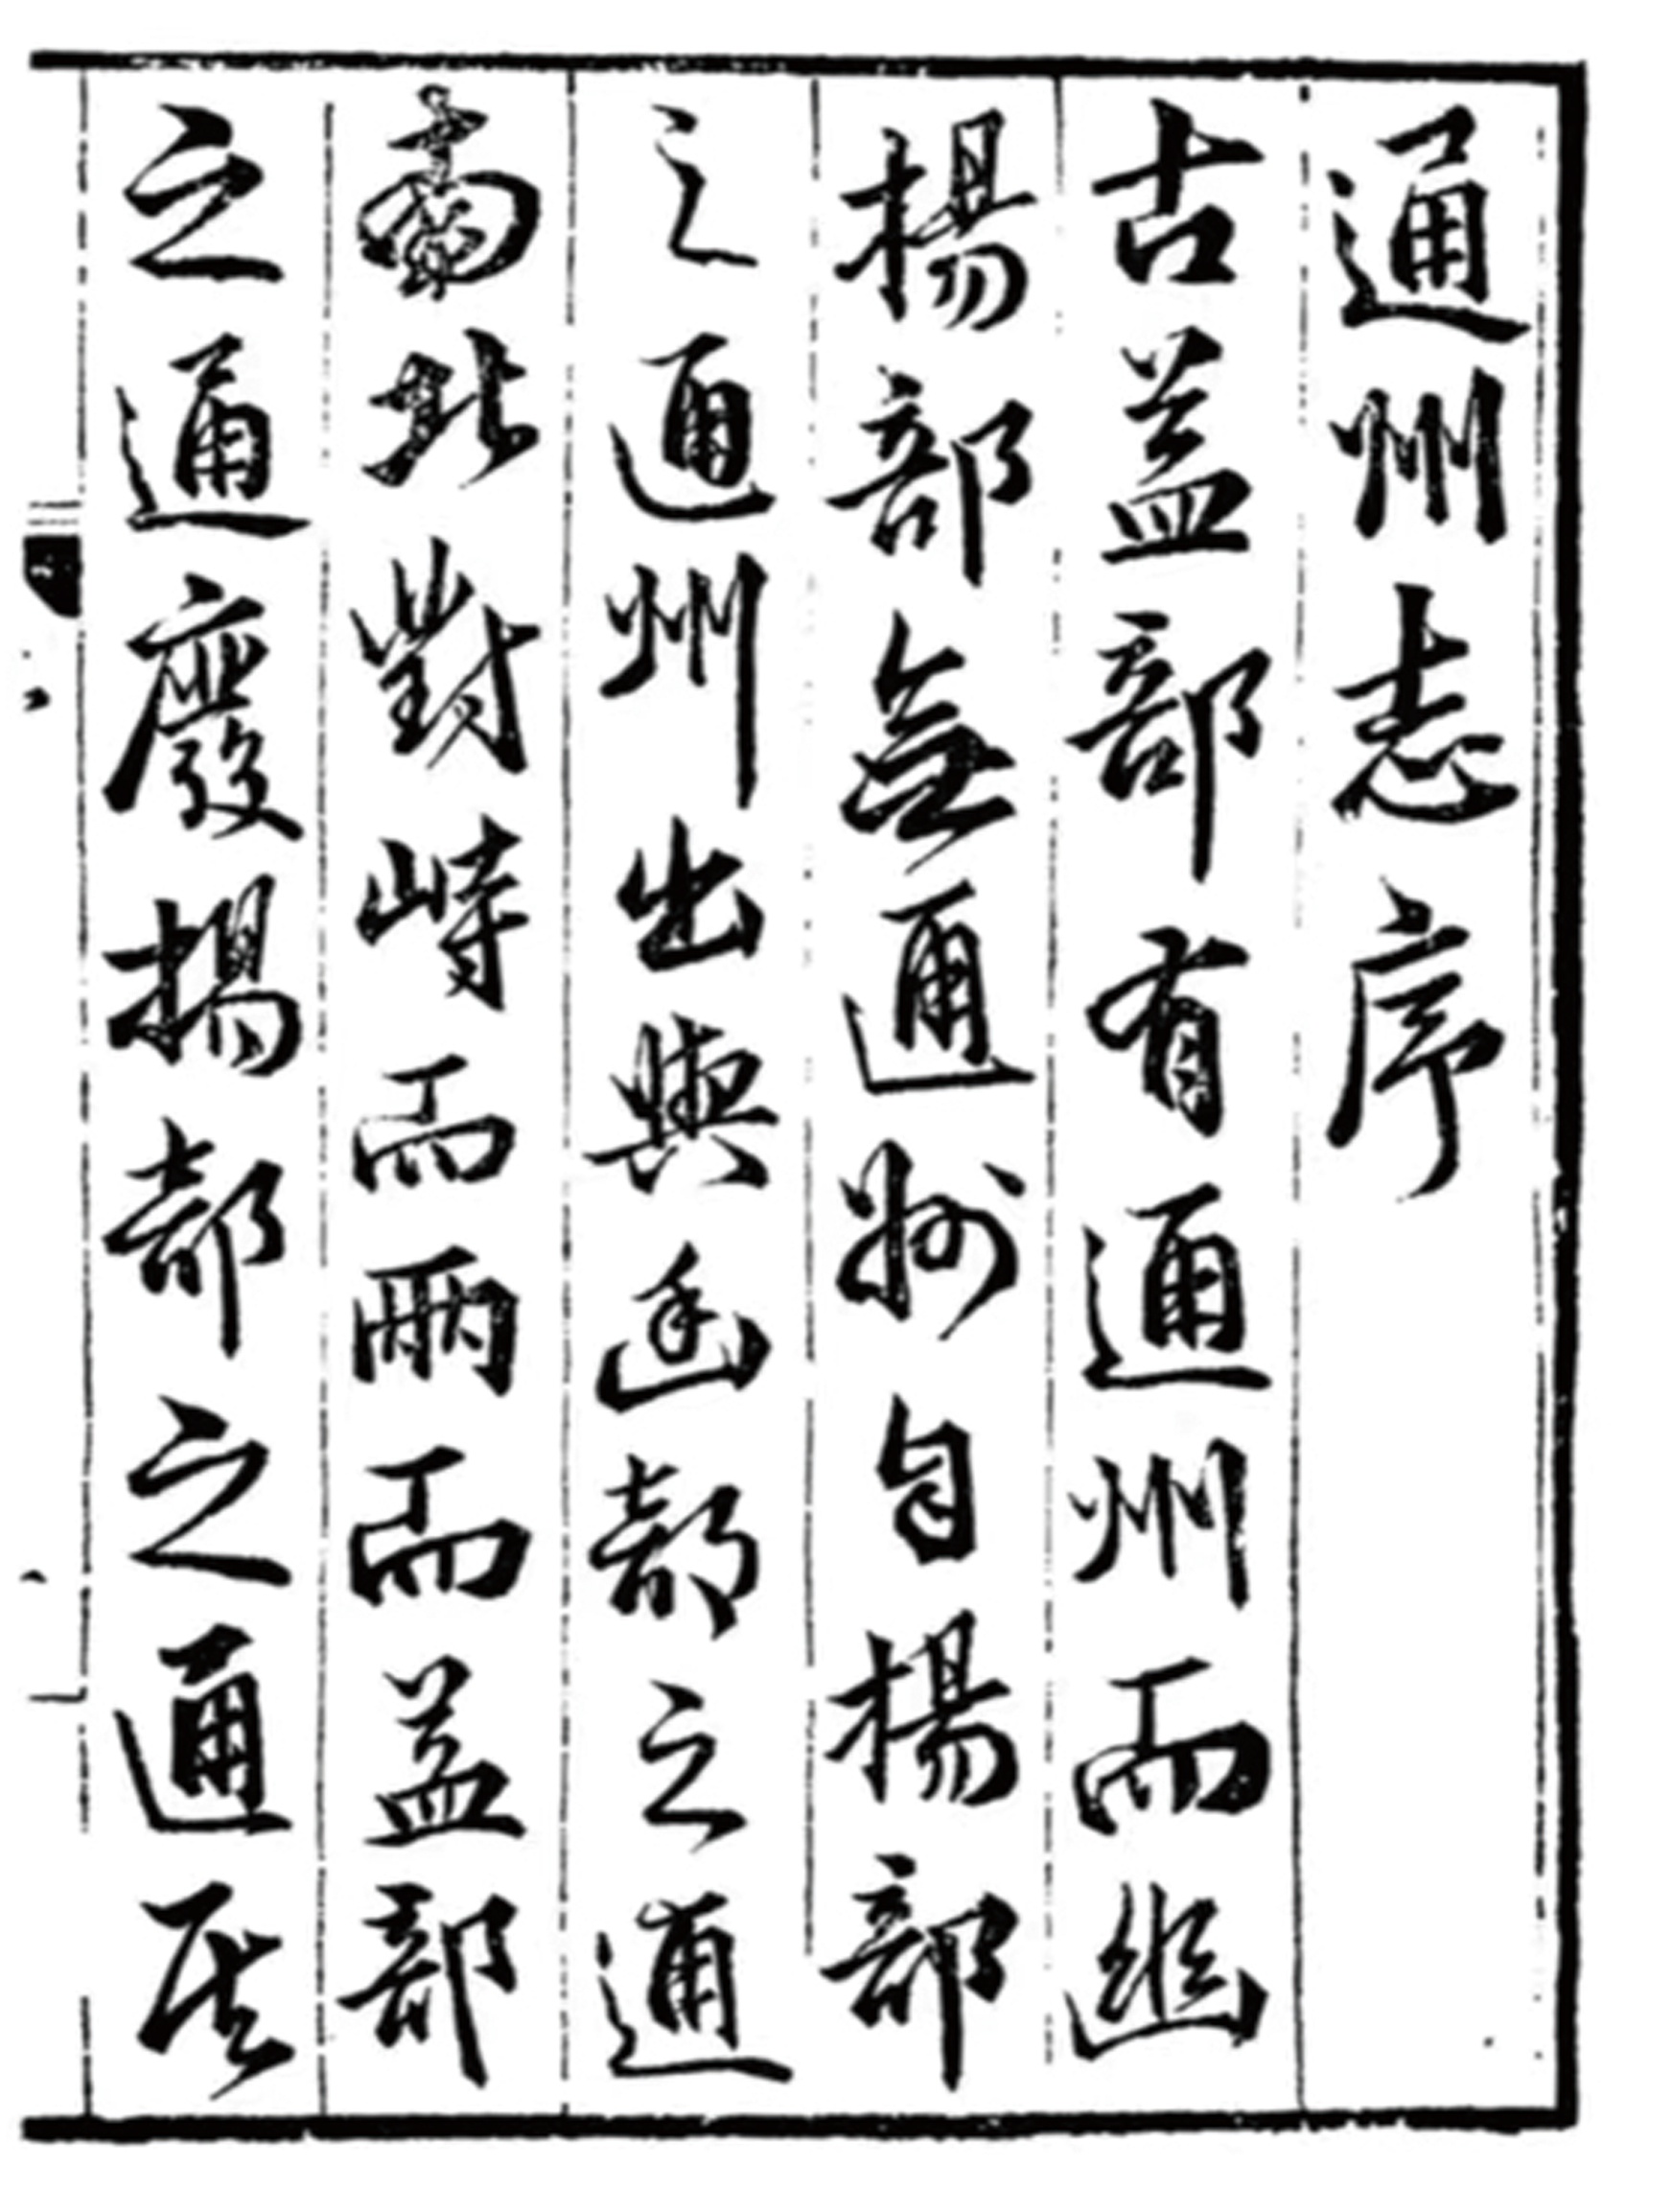 通州志序
古益部有通州而幽
揚部無通州自揚部
之通州出與幽部之通
南北對峙而兩而益部
之通廢揚部之通居